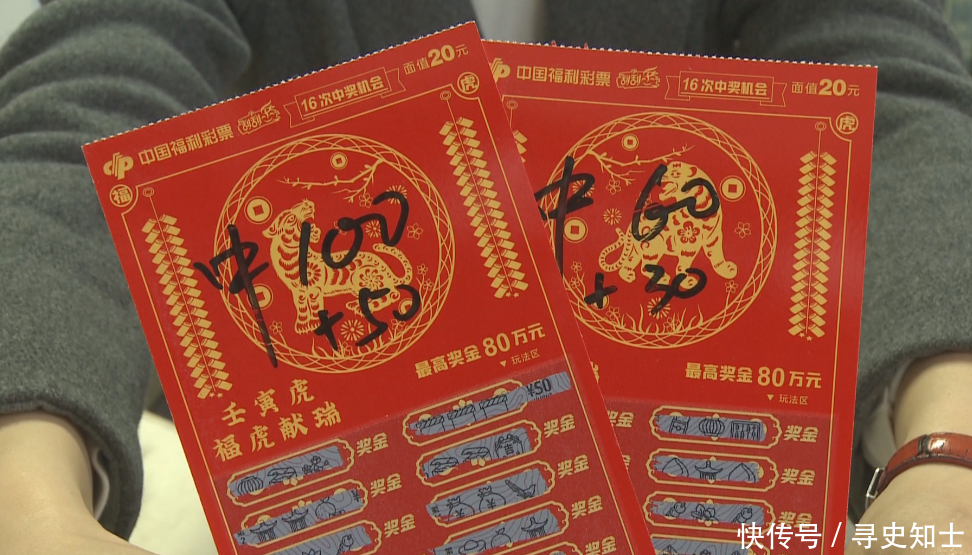 中国福利彩票 刮刮乐 16次中奖机会 面值20元
虎
福
中100
+50
最高奖金80万元
▼玩法区
壬寅虎
福虎献瑞
¥50
奖金
奖金
奖金
奖金
奖金
奖金
中国福利彩票 刮刮乐 16次中奖机会 面值20元
虎
中60
+30
最高奖金80万元
▼玩法区
奖金
奖金
奖金
奖金
奖金
快传号 / 寻史知士